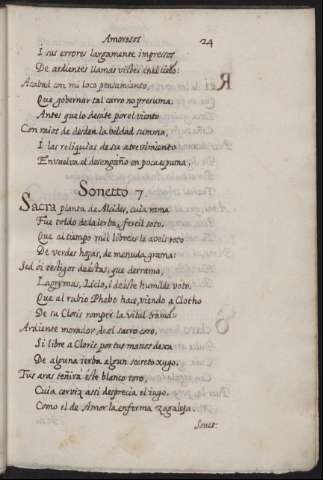 Amorosos 24
I sus errores largamente impressos
De ardientes llamas vistes en el cielo:
Acabad con mi loco pensamiento,
Que gobernar tal carro no presuma;
Antes que lo desate por el viento
Con raios de desden la beldad summa,
I las reliquias de su atrevimiento
Envuelva el desengaño en poca espuma;
Sonetto 7
Sacra planta de Alcides, cuia rama
Fue toldo de la ierba; fertil soto,
Que al tiempo mil libreas le aveis roto
De verdes hojas, de menuda grama:
Sed oi testigos de estas, que derrama,
Lagrymas, Licio, i de este humilde voto,
Que al rubio Phebo hace, viendo a Clotho
De su Cloris romper la vital trama:
Ardiente morador del sacro coro,
Si libre a Cloris por tus manos dexa
De alguna ierba algun secreto xugo;
Tus aras teñirá este blanco toro,
Cuia cerviz assi desprecia el iugo,
Como el de Amor la enferma zagaleja.
Sonet-